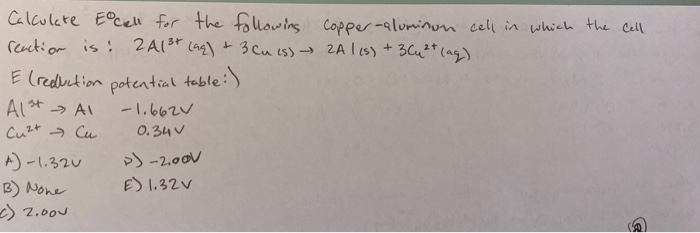 Calculate E°cell for the following copper-aluminum cell in which the cell
reaction is: 2Al³⁺ (aq) + 3Cu (s) → 2Al (s) + 3Cu²⁺ (aq)
E (reduction potential table:)
Al³⁺ → Al -1.662V
Cu²⁺ → Cu 0.34V
A) -1.32V D) -2.00V
B) None E) 1.32V
C) 2.00V